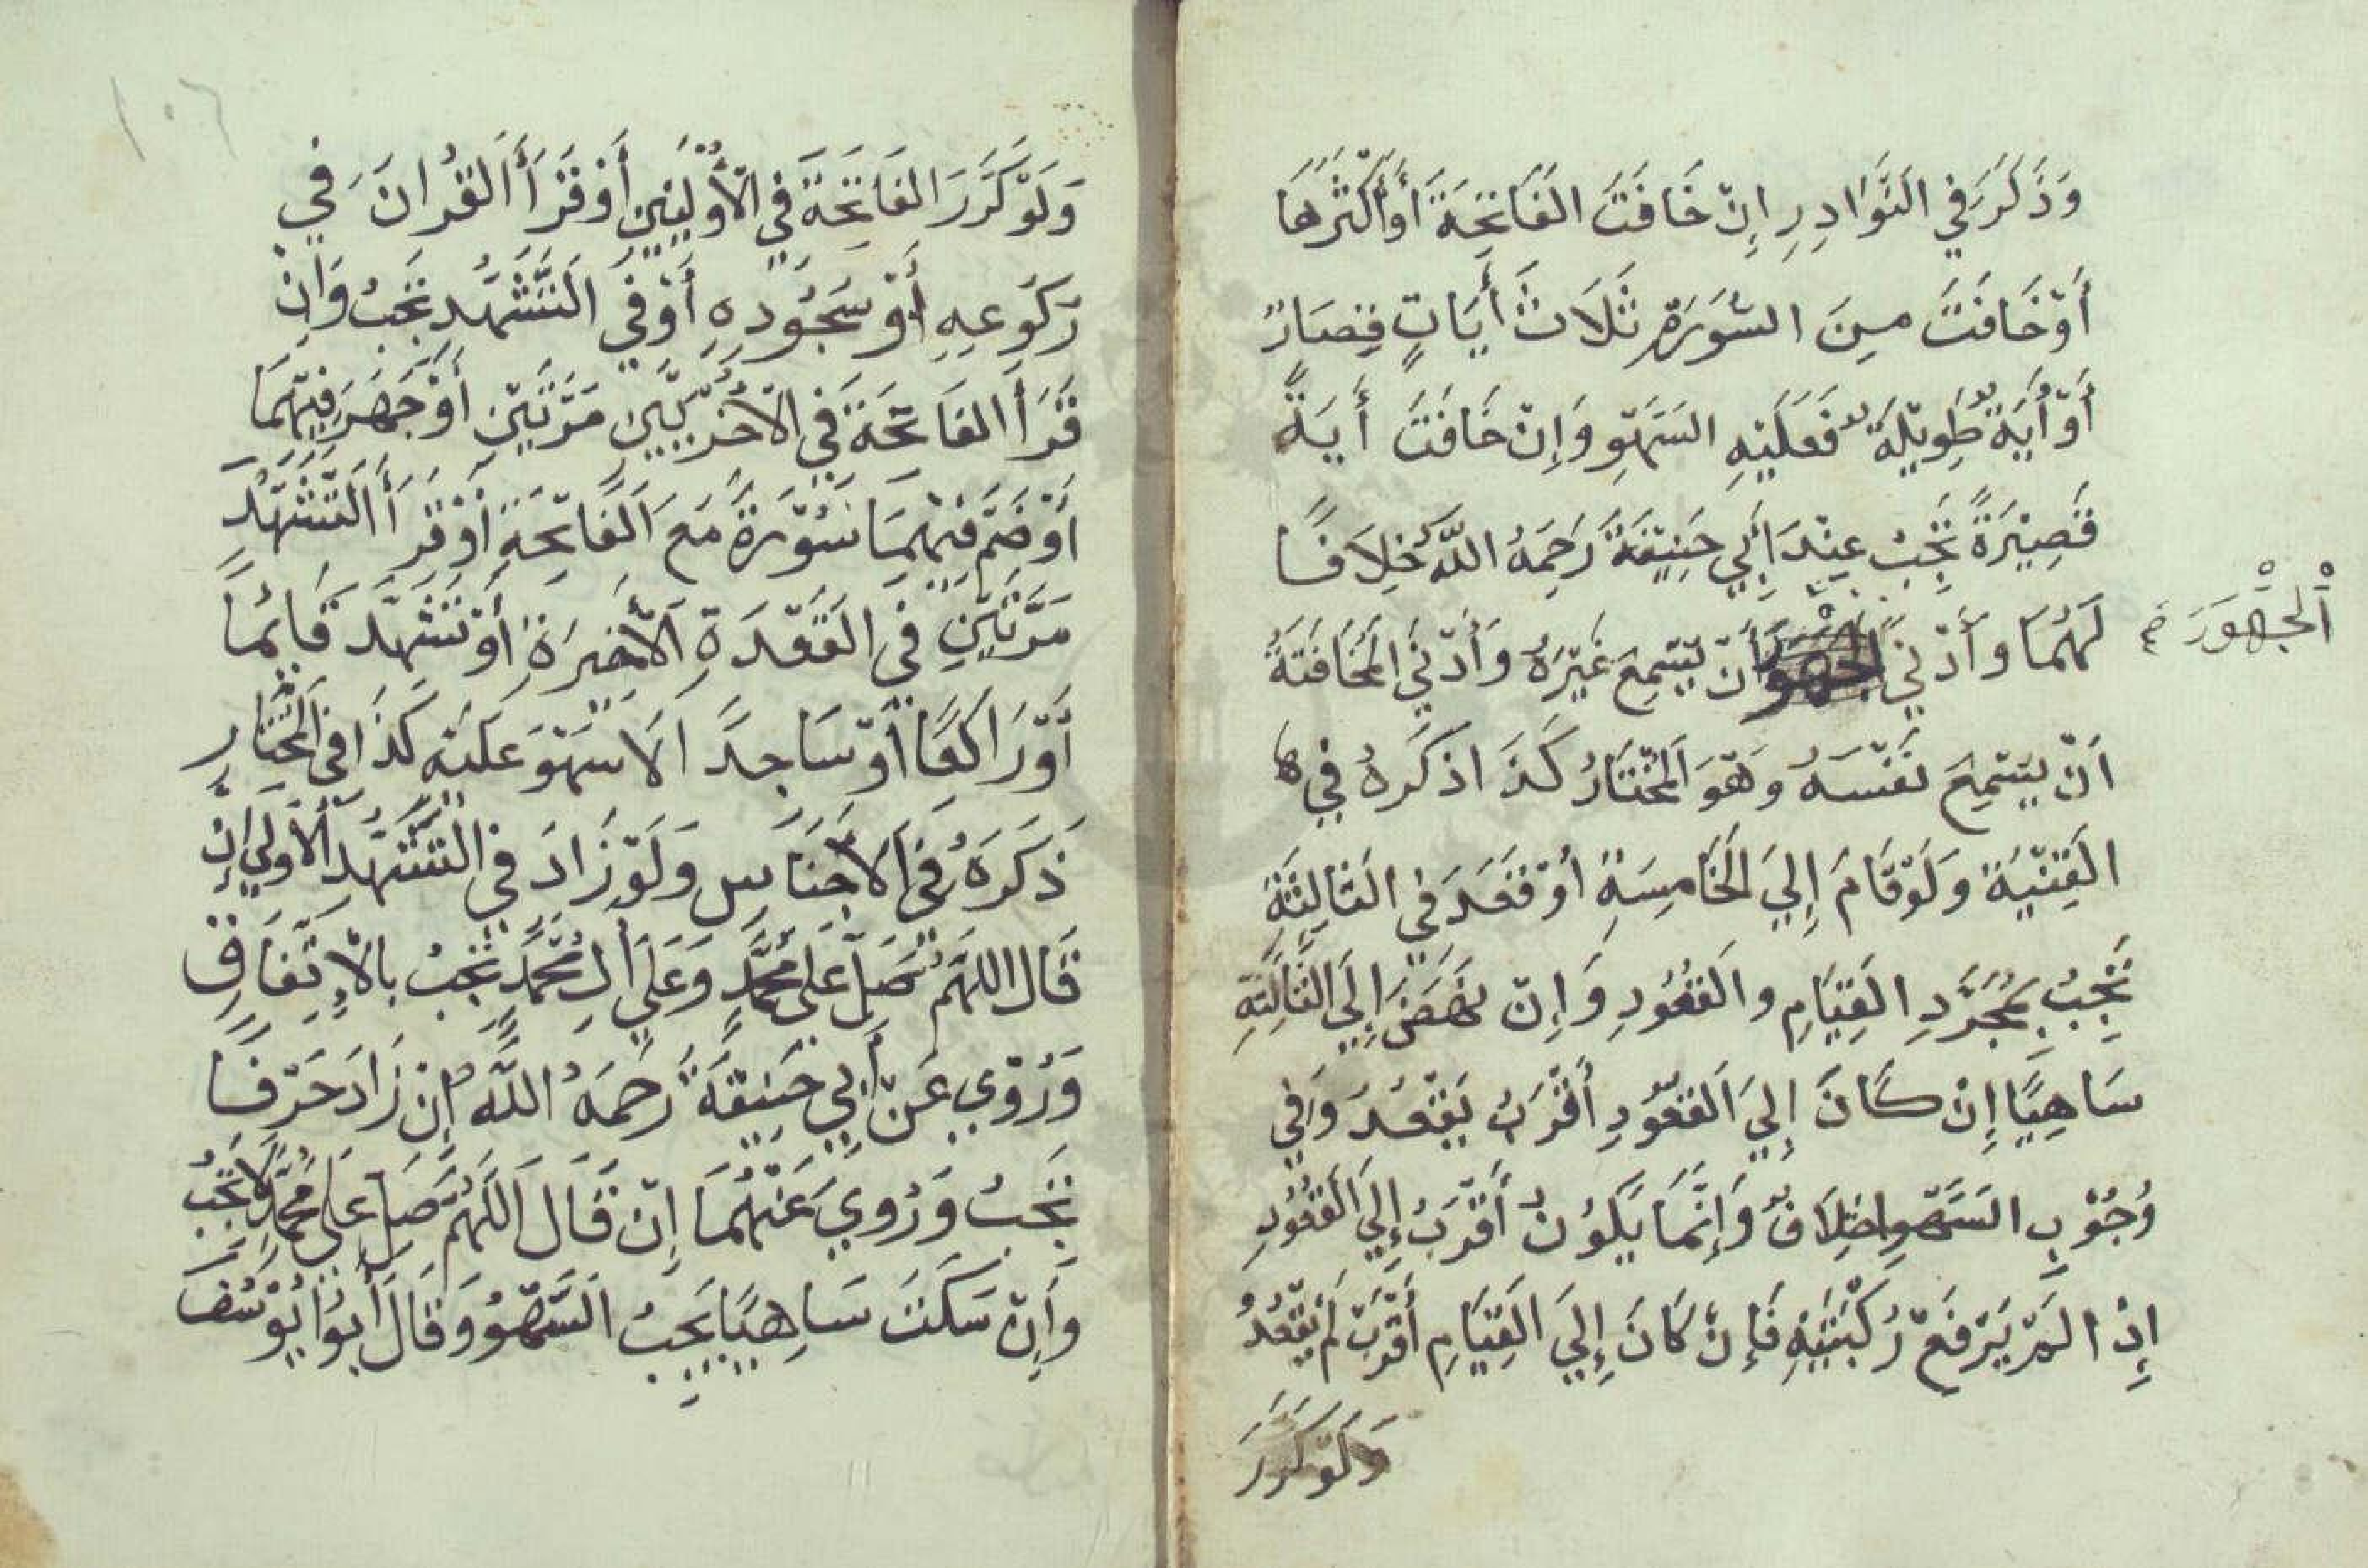 وَذَكَرَ في النَّوَادِرِ إِنْ خَافَتَ الفَاتِحَةَ أَوْ أَكْثَرَهَا
أَوْ خَافَتَ مِنَ السُّورَةِ ثَلَاثَ أَيَاتٍ قِصَارٍ
أَوْ أَيَةً طَوِيْلَةً فَعَلَيْهِ السَهْوِ وَإِنْ خَافَتَ أَيَةً
قَصِيْرَةً تَجِبُ عِنْدَ أَبِي حَنِيْفَةَ رَحِمَهُ اللَّهُ خِلَافًا
لَهُمَا وَأَدْنَي أَنْ يَسْمِعَ غَيْرَهُ وَأَدْنَي المُخَافَتَةُ
اَلْجَهْوَرَ صح
اَنْ يَسْمِعَ نَفْسَهُ وَهْوَ المُخْتَارُ كَذَا ذكَرَهُ فِي
القِنْيَةِ وَلَوْ قَامَ إِلَيَ الخَامِسَةِ أَوْ قَعَدَ فِي الثَالِثَةِ
تَجِبُ بِمُجَرَّدِ القِيَامِ وَالقُعُودِ وَإِنْ نَهَضَ إِلَيَ الثَّالِثَةِ
سَاهِيًا إِنْ كَانَ إِلَيَ القُعُوْدِ أَقْرَبُ يَقْعُدُ وَفِي
وُجُوْبِ السَّهْوِ اخْتِلَافٌ وَإِنَّمَا يَكُوْنُ أَقْرَبُ إِلَيَ القُعُوْدِ
إِذْ الَمْ يَرْفَعْ رُكْبَتَيْهِ فَإِنْ كَانَ إِلَيَ القِيَامِ أَقْرَبْ لَمْ يَقْعُدُ
وَلَوْ كَرَرَ
١٠٦
وَلَوْ كَرَّرَ الفَاتِحَةَ فِي الأُوْلَيَيْنِ أَوْ قَرَأَ القُرانَ فِي
رُكُوعِهِ أَوْ سُجُوْدِهِ أَوْ فِي التَّشَهُّدِ تَجِبُ وَإِنْ
قَرَأَ الفَاتِحَةَ فِي الأُخْرَيَيْنِ مَرَّتَيْنِ أَوْ جَهَرَ فِيْهِمَا
أَوْ ضَمَّ فِيْهِمَا سُوْرَةً مَعَ الفَاتِحَةِ أَوْ قَرَأَ التَّشَهُّدَ
مَرَّتَيْنِ فِي القَعْدَةِ الأَخِيرَةِ أَوْ تَشَهَّدَ قَايِمًا
أَوْ رَاكِعًا أَوْ سَاجِدًا لَا سَهْوَ عَلَيْهِ كَذَا فِي المُخْتَارِ
ذَكَرَهُ فِي الاَجْنَاسِ وَلَوْ زَادَ فِي التَّشَهُّدِ الأُوْلَي إِنْ
قَالَ اللهُمَّ صَلِّ عَلَي مُحَمَّدٍ وَعَلَي أَلِ مُحَمَّدٍ تَجِبُ بِالإِتِّفَاقِ
وَرُوْيِ عَنْ أَبِي حَنِيْفَةَ رَحِمَهُ اللَّهُ إِنْ زَادَ حَرْفًا
تَجِبُ وَرُوِيَ عَنْهُمَا إِنْ قَالَ اللَّهُمَّ صَلِّ عَلَي مُحَمَّدٍ لَا تَجِبُ
وَإِنْ سَكَتَ سَاهِيًا يَجِبُ السَّهْوُ وَقَالَ أَبُوْا يُوْسُفَ